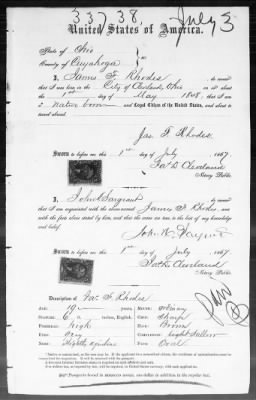 33738,
July 3
United States of America.
State of Ohio
County of Cuyahoga
I, James F. Rhodes do swear
that I was born in the City of Cleveland, Ohio
on the 1st day of May 1848, that I am
a native born and Loyal Citizen of the United States, and about to
travel abroad.
Jas. F. Rhodes
Sworn to before me this 1st day of July 1867
Notary Public.
I, John W. Sargeant do swear
that I am acquainted with the above named James F. Rhodes and
with the facts above stated by him, and that the same are true, to the best of my knowledge
and belief.
John W. Sargeant
Sworn to before me this 1st day of July 1867
Notary Public.
Description of Jas. F. Rhodes
Age: 19 years, Mouth:
Stature: 6 feet inches, English. Chin: Sharp
Forehead: high Hair: Brown
Eyes: Grey Complexion: light Sallow
Nose: slightly aquiline Face: Oval